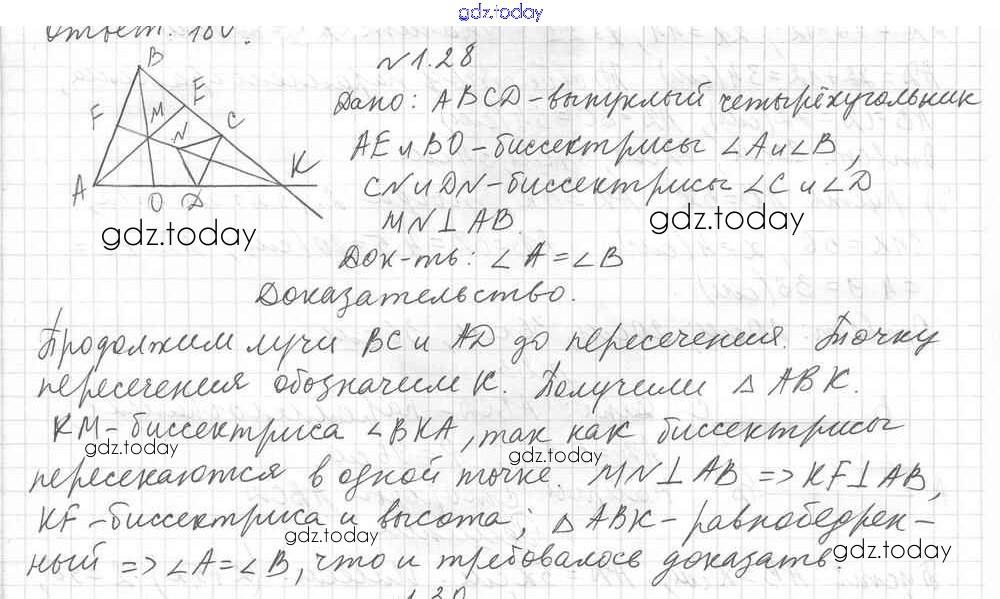 gdz.today
Ответ: 180°.
№1.28
B
E
F
M
N
C
K
A
O
D
Дано: ABCD-выпуклый четырёхугольник
AE и BO-биссектрисы ∠A и ∠B,
CN и DN-биссектрисы ∠C и ∠D
MN⊥AB.
gdz.today
gdz.today
Док-ть: ∠A=∠B
Доказательство.
Продолжим лучи BC и AD до пересечения. Точку
пересечения обозначим K. Получили △ABK.
KM-биссектриса ∠BKA, так как биссектрисы
gdz.today
gdz.today
пересекаются в одной точке. MN⊥AB => KF⊥AB,
KF-биссектриса и высота; △ABK-равнобедрен-
gdz.today
gdz.today
ный => ∠A=∠B, что и требовалось доказать.